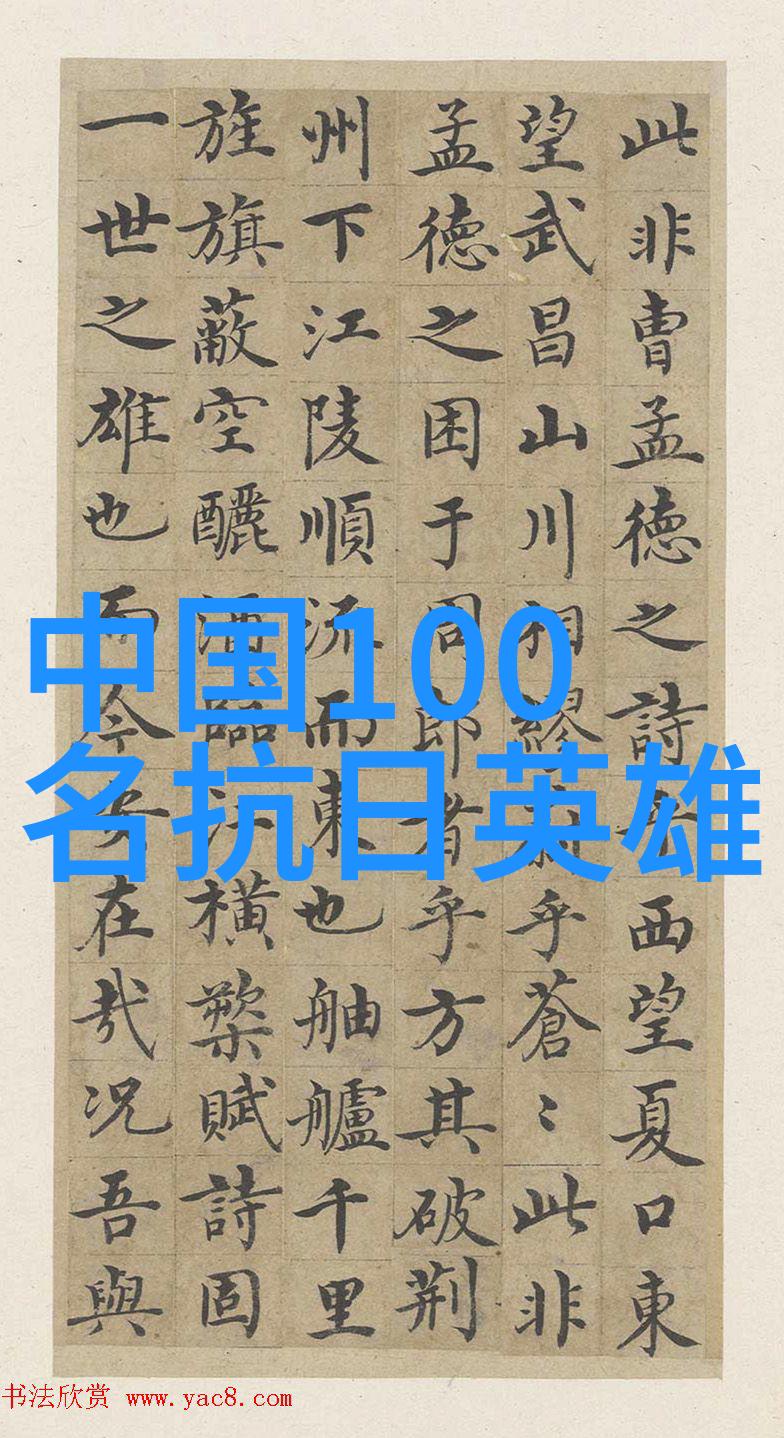 此非曹孟德之詩乎西望夏口東
望武昌山川相繆乎蒼〻此非
孟德之困于周郎者乎方其破荆
州下江陵順流而東也舳艫千里
旌旗蔽空釃酒臨江横槊賦詩固
一世之雄也而今安在哉况吾與
中国100
名抗日英雄
书法欣赏 www.yac8.com